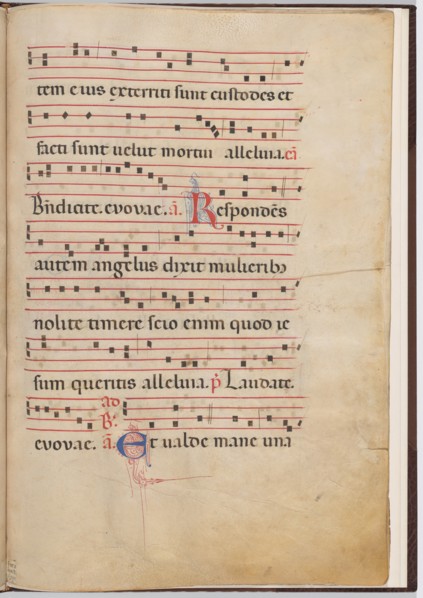 tem eius exterriti sunt custodes et
facti sunt uelut mortui alleluia. añ
Bñdicite. evovae. ã. Respondēs
autem angelus dixit mulieribꝫ
nolite timere scio enim quod ie
sum queritis alleluia. p̃ Laudate.
ad
evovae. B̃: ã. Et ualde mane una